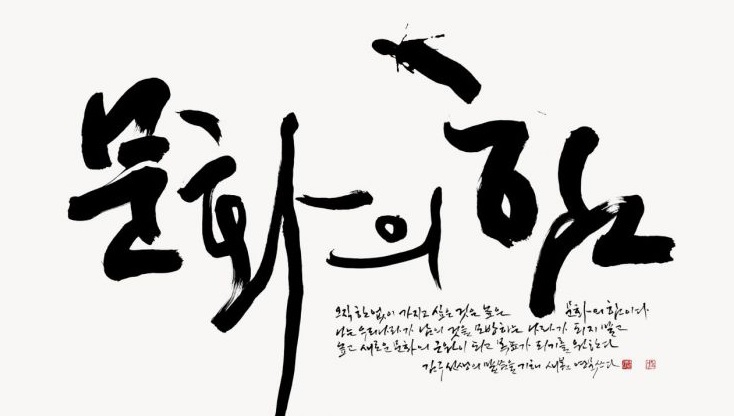 문화의 힘
오직 한없이 가지고 싶은 것은 높은 문화의 힘이다
나는 우리나라가 남의 것을 모방하는 나라가 되지 말고
높고 새로운 문화의 근원이 되고 목표가 되기를 원한다
김구 선생의 말씀을 쓰다